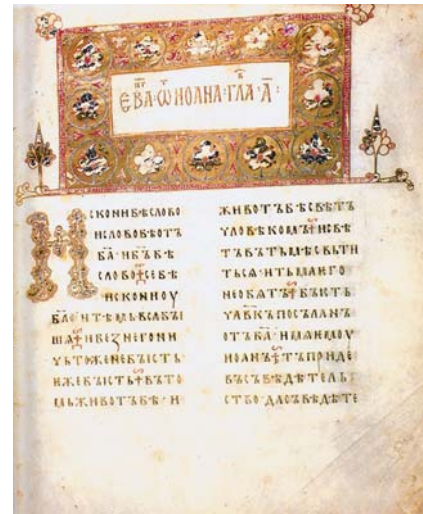 ЕВА·Ѿ ИОАНА·ГЛА·А҃:
ИСКОНИБѢСЛОВО
ИСЛОВОБѢОТЪ
БА҃·ИБЪ҃БѢ
СЛОВО·СЕБѢ
ИСКОНИОУ
БА҃·ИТѢМЬВЬСАБЫ
ШѦ·ИБЕЗНЕГОНИ
ЧЬТОЖЕНЕБЫСТЬ·
ѤЖЕБЫСТЬ·ВЪТО
МЬЖИВОТЪБѢ·И
ЖИВОТЪБѢСВѢТЪ
ЧЛОВѢКОМЪ·ИСВѢ
ТЪВЪТЬМѢСВЬТИ
ТЬСѦ·ИТЬМАѤГО
НЕОБѦТЪ·БЫСТЬ
ЧЛ҃ВКЪПОСЪЛАНЪ
ОТЪБА҃·ИМѦѤМОУ
ИОАНЪ·ТЪПРИДЕ
ВЪСЪВѢДѢТЕЛЬ
СТВО·ДАСЪВѢДѢТЕ